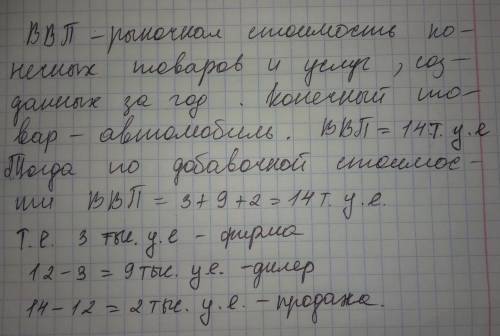 ВВП – рыночная стоимость ко-
нечных товаров и услуг, соз-
данных за год. Конечный то-
вар – автомобиль. ВВП = 14т. у.е
Тогда по добавочной стоимос-
ти ВВП = 3 + 9 + 2 = 14 т. у.е.
т.е. 3 тыс. у.е – фирма
12 – 3 = 9 тыс. у.е. – дилер
14 – 12 = 2 тыс. у.е. – продажа.